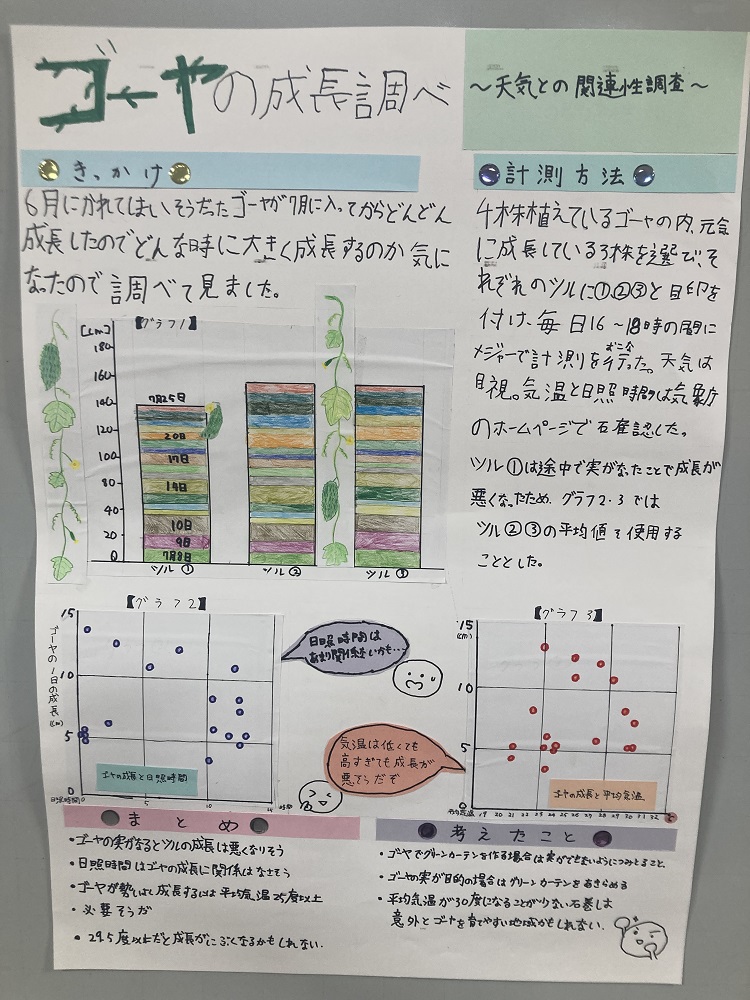 ゴーヤの成長調べ
～天気との関連性調査～
きっかけ
6月にかれてしまいそうだったゴーヤが7月に入ってからどんどん
成長したのでどんな時に大きく成長するのか気に
なったので調べて見ました。
計測方法
4株植えているゴーヤの内、元気
に成長している3株を選び、そ
れぞれのツルに①,②,③と目印を
付け、毎日16～18時の間に
メジャーで計測を行(おこな)った。天気は
目視。気温と日照時間は気象庁
のホームページで確認した。
ツル①は途中で実がなったことで成長が
悪くなったため、グラフ2・3では
ツル②③の平均値を使用する
こととした。
【グラフ1】
(cm)
180
160
140
120
100
80
60
40
20
0
7月25日
20日
17日
14日
10日
9日
7月8日
ツル①
ツル②
ツル③
【グラフ2】
15
10
5
0
ゴーヤの1日の成長(cm)
ゴーヤの成長と日照時間
日照時間 0
5
10
14
時間
日照時間は
あまり関係ないかも…
気温は低くても
高すぎても成長が
悪そうだぞ
【グラフ3】
15
(cm)
10
5
0
ゴーヤの成長と平均気温
平均気温 19 20 21 22 23 24 25 26 27 28 29 30 31 32
まとめ
・ゴーヤの実がなるとツルの成長は悪くなりそう
・日照時間はゴーヤの成長に関係はなさそう
・ゴーヤが勢いよく成長するには平均気温25度以上
・必要そうだ
・29.5度以上だと成長がにぶくなるかもしれない.
考えたこと
・ゴーヤでグリーンカーテンを作る場合は実ができないようにつみとること、
・ゴーヤの実が目的の場合はグリーンカーテンをあきらめる
・平均気温が30度になることが少ない石巻は
意外とゴーヤを育てやすい地域かもしれない.